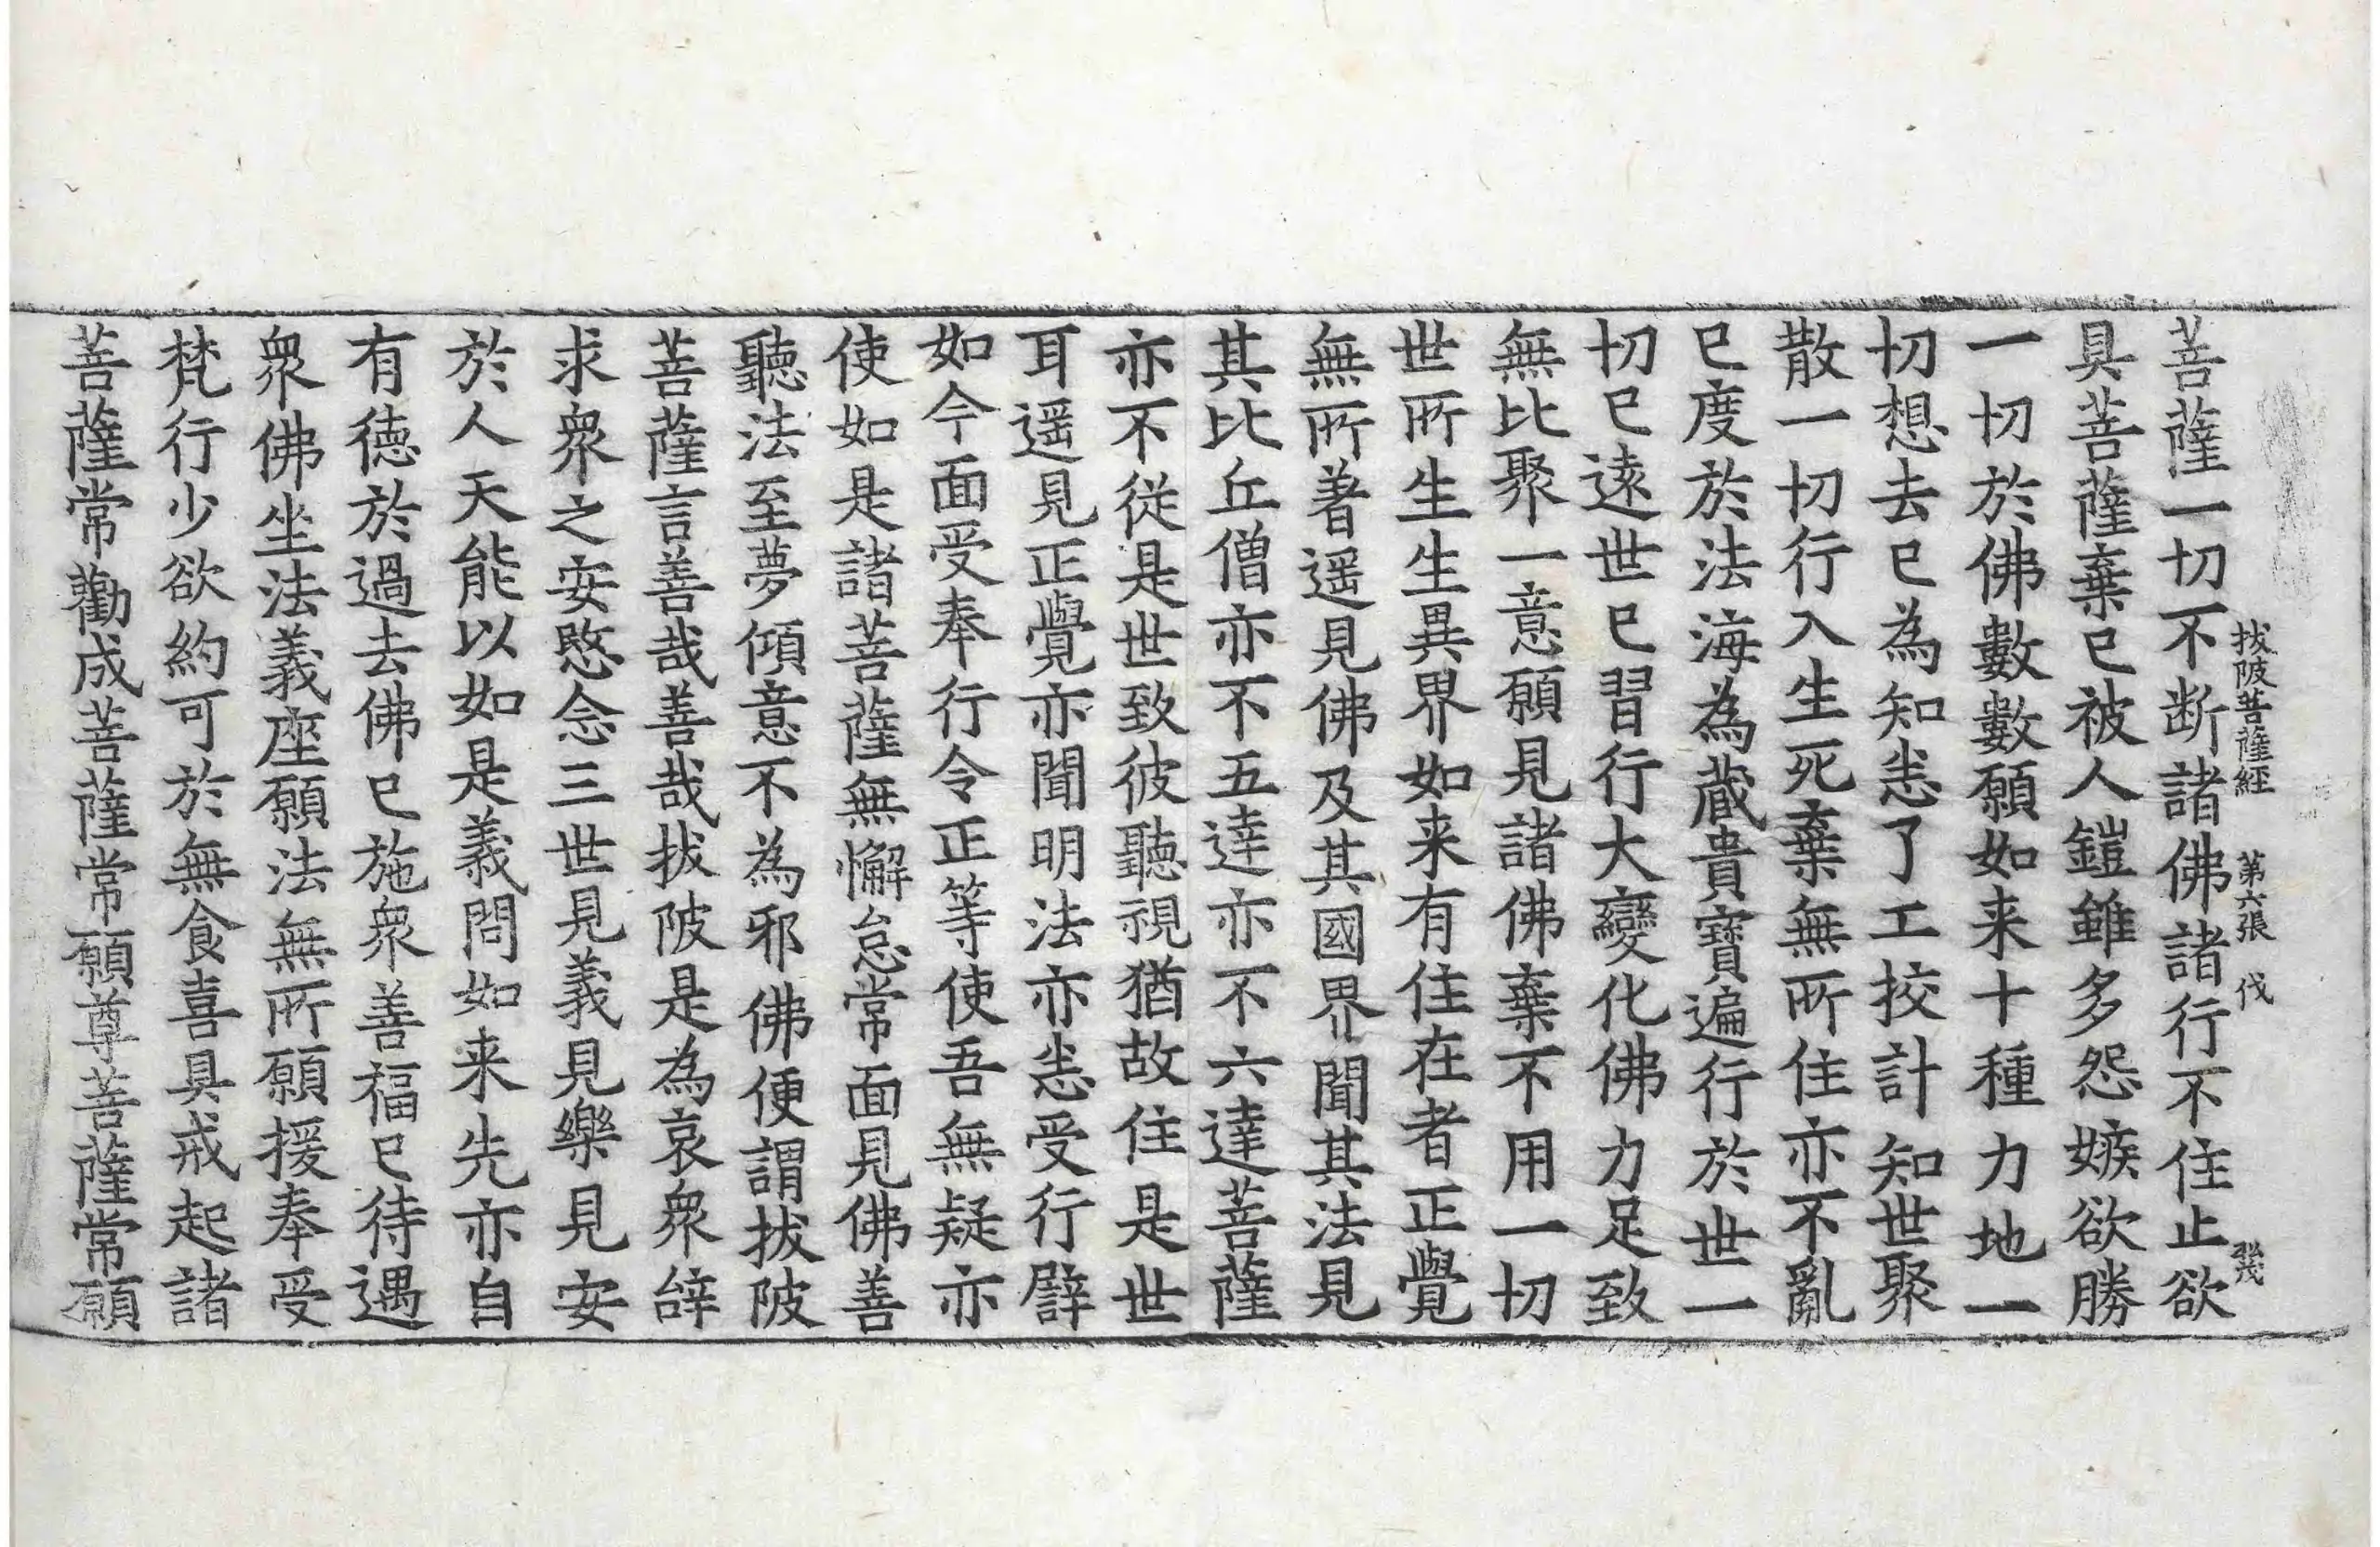 菩薩一切不断諸佛諸行不住止欲
具菩薩棄已被人鎧雖多怨嫉欲勝
一切於佛數數願如来十種力地一
切想去已為知悉了工挍計知世聚
散一切行入生死棄無所住亦不亂
已度於法海為蔵貴寶遍行於世一
切已遠世已習行大變化佛力足致
無比聚一意願見諸佛棄不用一切
世所生生異界如来有住在者正覺
無所著遥見佛及其國界聞其法見
其比丘僧亦不五達亦不六達菩薩
亦不從是世致彼聽視猶故住是世
耳遥見正覺亦聞明法亦悉受行譬
如今面受奉行令正等使吾無疑亦
使如是諸菩薩無懈怠常面見佛善
聽法至夢傾意不為邪佛便謂拔陂
菩薩言善哉善哉拔陂是為哀衆辝
求衆之安愍念三世見義見樂見安
於人天能以如是義問如来先亦自
有德於過去佛已施衆善福已待遇
衆佛坐法義座願法無所願援奉受
梵行少欲約可於無食喜具戒起諸
菩薩常勸成菩薩常願尊菩薩常願
拔陂菩薩經 第六張 伐